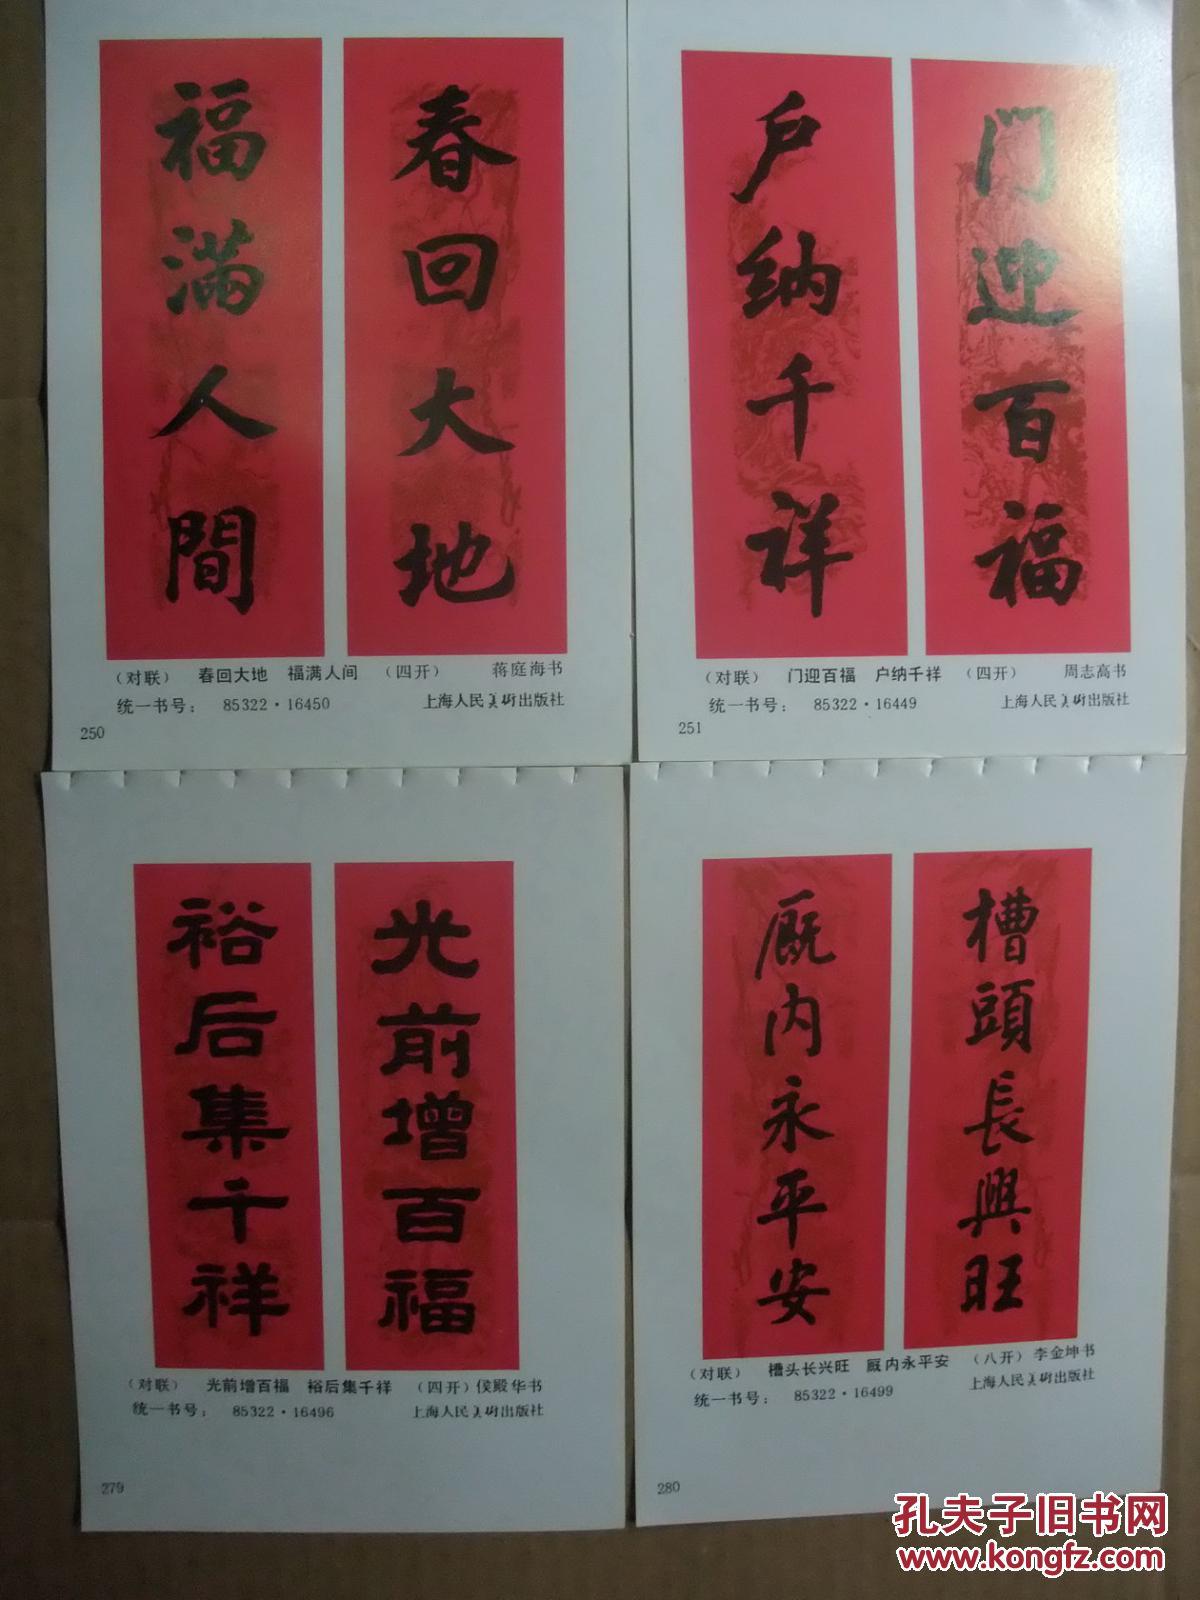 春回大地
福满人間
（对联） 春回大地 福满人间 （四开） 蒋庭海书
统一书号： 85322·16450 上海人民美术出版社
250
门迎百福
户纳千祥
（对联） 门迎百福 户纳千祥 （四开） 周志高书
统一书号： 85322·16449 上海人民美术出版社
251
光前增百福
裕后集千祥
（对联） 光前增百福 裕后集千祥 （四开）侯殿华书
统一书号： 85322·16496 上海人民美术出版社
279
槽頭長興旺
厩内永平安
（对联） 槽头长兴旺 厩内永平安 （八开）李金坤书
统一书号： 85322·16499 上海人民美术出版社
280
孔夫子旧书网
www.kongfz.com